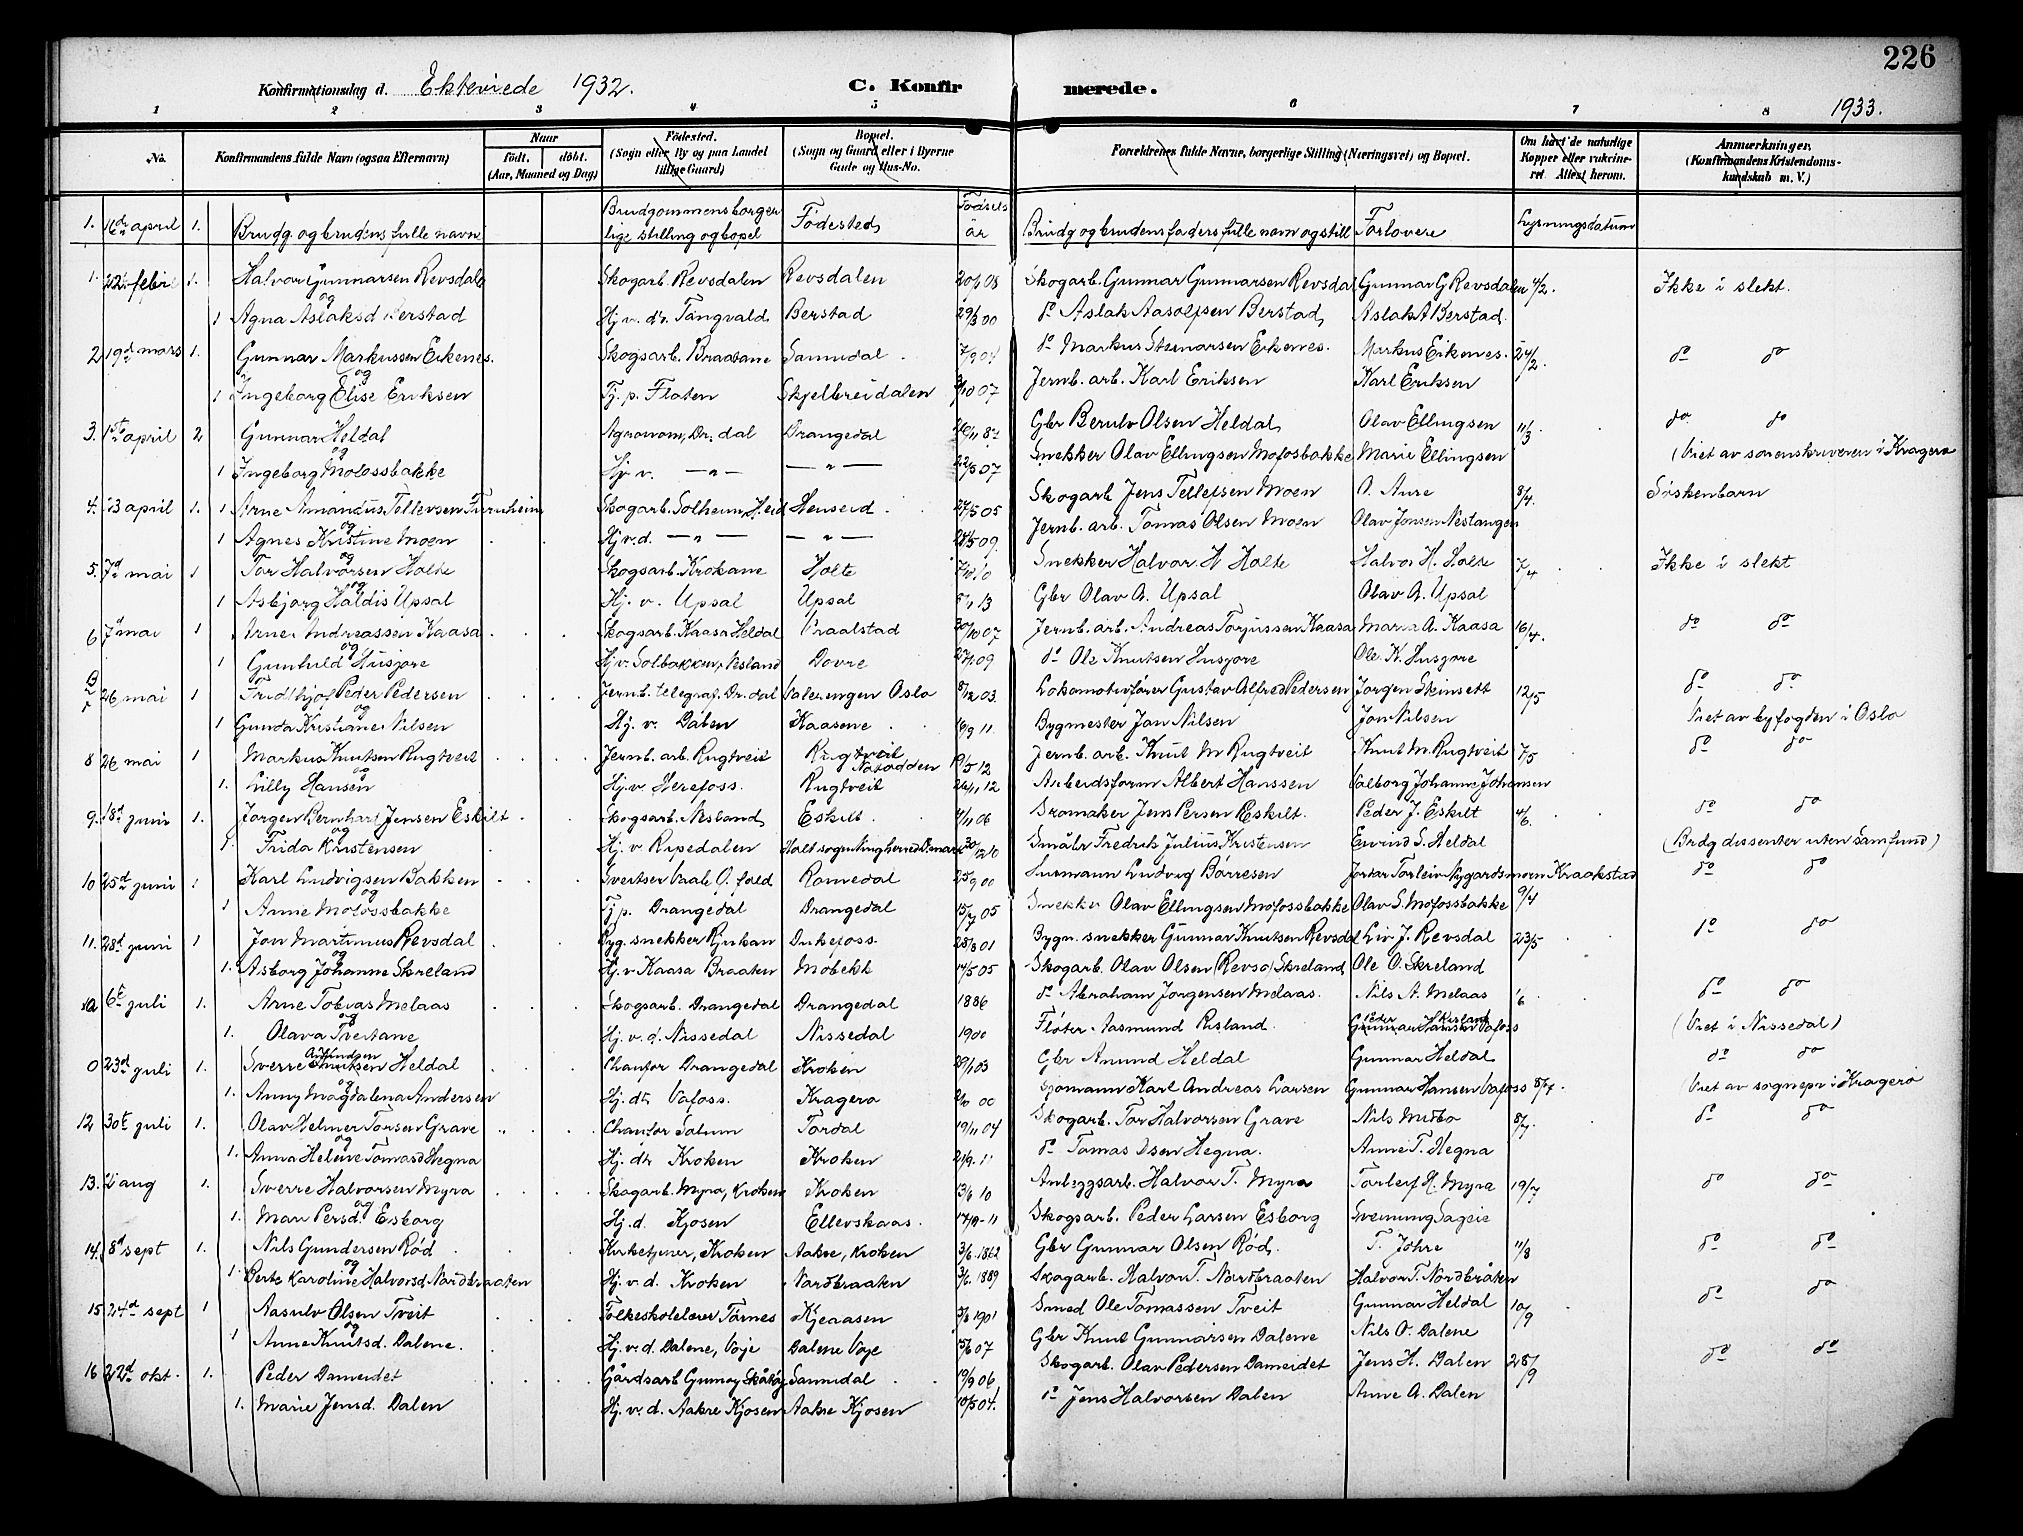 226
Konfirmationsdag d. Ektevigde 1932. C. Konfirmerede.
1933.
1 2 3 4 5 6 7 8
No. Konfirmandens fulde Navn (ogsaa Efternavn) Naar født. døbt. (Aar, Maaned og Dag) Fødested. (Sogn eller By og paa Landet tillige Gaard) Bopæl. (Sogn og Gaard eller i Byerne Gade og Hus-No. Forældrenes fulde Navne, borgerlige Stilling (Næringsvei) og Bopæl. Om havt de naturlige Kopper eller vaccineret. Attest herom. Anmærkninger. (Konfirmandens Kristendomskundskab m. V.)
1. april 1. Brudg. og brudens fulle navn Brudgommens borgerlige stilling og bopel Fødested Fødselsår Brudg og brudens faders fulle navn og still Forlovere Lysningsdatum
1. 22 febr 1. Halvor Gunnarsen Revsdal Skogarb. Revsdalen Revsdalen 08 Skogarb. Gunnar Gunnarsen Revsdal Gunnar G Revsdalen 4/2. Ikke i slekt.
og
1 Agna Aslaksd Berstad Hj v. dr. Tangvald Berstad 29/3 00 do Aslak Aasolfsen Berstad Aslak A Berstad.
2 19d mars 1. Gunnar Markussen Eikenes. Skogsarb. Braatane Sannidal 7/9 04 do Markus Steinarsen Eikenes. Markus Eikenes. 24/2. do do
og
1 Ingeborg Elise Eriksen Tj. p. Floten Skjelbreidalen 3/10 07 Jernb. arb. Karl Eriksen Karl Eriksen
3. 1ste april 2 Gunnar Heldal Agronom, Dr. dal Drangedal Gbr Berulv Olsen Heldal Olav Ellingsen 11/3 do do
og
1 Ingeborg Mofossbakke Hj v. — „ — — „ — 22/3 07 Snekker Olav Ellingsen Mofosbakke Marie Ellingsen (Viet av sorenskriveren i Kragerø
4. 23 april 1. 1 Arne Amandus Tellevsen Skogarb. Solheim, Heid Henseid 27/5 05 Skogarb Jens Tellefsen Moen O. Aure 8/4. Søskenbarn
og
1 Agnes Kristine Moen Hj v. d. — „ — — „ — 28/5 09. Jernb. arb. Tomas Olsen Moen Olav Jonsen Nestangen
5. 7d mai 1 Tor Halvorsen Holte Skogsarb. Krokane Holte 10 Snekker Halvor H Holte Halvor H. Holte 7/4 Ikke i slekt
og
1 Asbjørg Haldis Upsal Hj. v. Upsal Upsal 13 Gbr Olav A. Upsal Olav A. Upsal
6 7d mai 1 Arne Andreassen Kaasa Skogsarb. Kaasa Heldal Vraalstad 30/10 07 Jernb. arb. Andreas Torjussen Kaasa Maria A. Kaasa 16/4. do do
og
1 Gunhild Husjore Hj v. Solbakken, Nesland Dovre 27/1 09 do Ole Knutsen Husjore Ole K. Husjore
26 mai 1 Fridthjof Peder Pedersen Jernb. telegraf. Dr. dal Vaalerengen Oslo 8/12 03. Lokomotivfører Gustav Alfred Pedersen Jørgen Skinsett 12/5 do do
og
1 Gunda Kristiane Nilsen Hj. v. Daben Kaasene 16/9 11 Bygmester Jon Nilsen Jon Nilsen Viet av byfogden i Oslo
8 26 mai 1 Markus Knutsen Rugtveit Jernb. arb. Rugtveit Rugtveit 19/5 12 Jernb. arb. Knut M Rugtveit Knut M. Rugtveit 7/5 do do
og Notodden
1. Lilly Hansen Hj. v. Herefoss. Rugtveit 26/11 12 Arbeidsform Albert Hanssen Valborg Johanne Johansen
9. 18d juni 1. Jørgen Bernhard Jensen Eskilt Skogsarb. Nesland Eskilt 4/11 06 Skomaker Jens Persen Eskilt. Peder J. Eskilt 4/6. do do
og
1. Frida Kristensen Hj. v Ripedalen Holt sogn Ning herred Danmark 30/12 10 Småbr Fredrik Julius Kristensen Eivind S. Heldal (Brdg dissenter uten samfund)
10 25d juni 1 Karl Ludvigsen Bakken Sveitser Vaale Ø. fold Romedal 25/9 00 Ludvig Børresen Torleiv Nygardsmoen Kraakstad do do
og
1 Anne Mofossbakke Tj p. Drangedal Drangedal 15/7 05 Snekker Olav Ellingsen Mofossbakke Olav S. Mofossbakke 9/4
11. 28d juni 1 Jon Martinus Revsdal Byg. snekker Rjukan Dukefoss 28/8 01 Bygn. snekker Gunnar Knutsen Revsdal Liv J. Revsdal 23/5 do do
og
1. Asborg Johanne Skreland Hj. v Kaasa Braaten Mobekk 14/5 05 Skogarb. Olav Olsen (Revso) Skreland Ole O. Skreland
6te juli 1. Arne Tobias Melaas Skogsarb. Drangedal Drangedal 1886 do Abraham Jørgensen Melaas. Nils A. Melaas do do
og
1. Olava Tveitane Hj. v. d. Nissedal Nissedal 1900 Fløter Aasmund Risland. Peder Risland Gunnar Hansen Vafoss (Viet i Nissedal)
0 23d juli 1. Sverre Amundsen Knutsen Heldal Chaufør Drangedal Kroken 29/1 03 Gbr Anund Heldal Gunnar Heldal do do
og
1. Anny Magdalena Andersen Hj. dtr Vafoss. Kragerø 00 Sjømann Karl Andreas Larsen Gunnar Hansen Vafoss 8/7. (Viet av sognepr i Kragerø
12 30te juli 1. Olav Helmer Torsen Grave Chaufør Solum Tørdal 19/11 04 Skogarb. Tor Halvorsen Grave Nils Midbo 8/7 do do
og
1. Anna Helene Tomasd Hegna Hj. dtr Kroken Kroken 21/9 11 do Tomas Osen Hegna. Anne T. Hegna
13. 2 aug 1. Sverre Halvorsen Myra Skogarb. Myra, Kroken Kroken 13/6 10 Anleggsarb. Halvor T. Myra Torleif H. Myra 19/7 do do
og
1. Mari Persd. Esborg Hj. d. Kjosen Ellevskaas. 11 Skogsarb. Peder Larsen Esborg Sveinung Sageie
14. 8d sept 1. Nils Gundersen Rød Kirketjener, Kroken Aakre, Kroken 3/6 1862 Gbr Gunnar Olsen Rød. T. Johre 11/8 do do
og
1. Berte Karoline Halvorsd Nordbraaten Hj. v. d. Kroken Nordbraaten 3/6. 1889 Skogarb. Halvor T. Nordbraaten Halvor T. Nordbråten
15 24d sept 1 Aasulv Olsen Tveit Folkeskolelærer Tørnes Kjeaasen 1901 Smed Ole Tomassen Tveit Gunnar Heldal 10/9 do do
og
1 Anne Knutsd. Dalene. Hj. v. d. Dalene, Voje Dalene Voje 5/6 07 Gbr Knut Gunnarsen Dalene Nils O. Dalene
16 22d okt. 1. Peder Dameidet Gårdsarb Gumøy Skåtøy Sannidal 19/9 06 Skogarb. Olav Pedersen Dameidet Jens H. Dalen 28/9 do do
1. Marie Jensd. Dalen Hj. v. d. Aakre Kjosen Aakre Kjosen 10/5 04. do Jens Halvorsen Dalen Anne A. Dalen